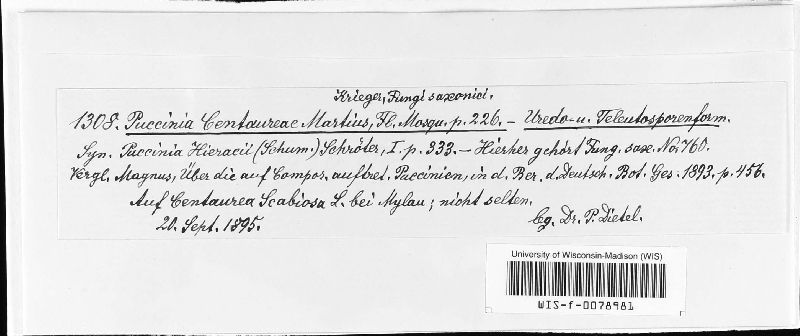 Krieger, Fungi saxonici.
1308. Puccinia Centaureae Martius, Fl. Mosqu. p. 226. – Uredo- u. Teleutosporenform.
Syn. Puccinia Hieracii (Schum.) Schröter, I. p. 333. – Hierher gehört Fung. sax. No. 760.
Vergl. Magnus, Über die auf Compos. auftret. Puccinien, in d. Ber. d. Deutsch. Bot. Ges. 1893. p. 456.
Auf Centaurea Scabiosa L. bei Mylau; nicht selten.
20. Sept. 1895. leg. Dr. P. Dietel.
University of Wisconsin-Madison (WIS)
WIS-f-0078981